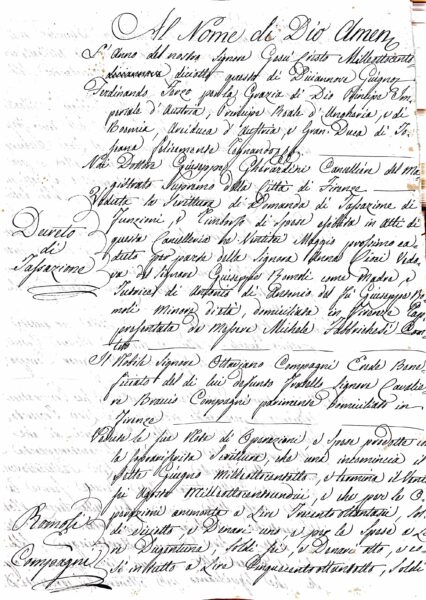 Al Nome di Dio Amen
L'Anno del nostro Signore Gesù Cristo Milleottocento
diciotto questo dì Diciannove Giugno
Ferdinando Terzo per la Grazia di Dio Principe Im-
periale d'Austria, Principe Reale d'Ungheria, e di
Boemia Arciduca d'Austria, e Gran-Duca di To-
scana felicemente
Noi Dottor Giuseppe Gherardini Cancelliere del Ma-
gistrato Supremo della Città di Firenze
Veduta la Scrittura di Domanda di Tassazione di
Funzioni, e Rimborso di Spese esibita in atti di
questa Cancelleria ne Maggio prossimo ca-
duto per parte della Signora Anna Vedo-
va del Signore Giuseppe Romoli come Madre, e
Tutrice di Antonio di Antonio del fù Giuseppe Ro-
moli Minore d'età, domiciliata in Firenze Rap-
presentata da Messere Michele
Decreto
di
Tassazione
Il Nobile Signore Ottaviano Compagni Erede Bene-
ficiato del di lui defunto Fratello Signore Cavalie-
re Braccio Compagni parimente domiciliato in
Firenze
Vedute le sue Note di Operazioni, e Spese prodotte con
la Scrittura, che una incomincia il
Sette Giugno Milleottocentotto, e termina il Venti
sei Agosto Milleottocentoundici, e che per le O-
perazioni ammonta a Lire Trecentottantasei, Soldi
diciotto, e Denari uno, e per le Spese a Li-
re Dugentuna, Soldi sei, e Denari otto, e co-
sì in tutto a Lire Cinquecentottantotto, Soldi
Romoli
e
Compagni